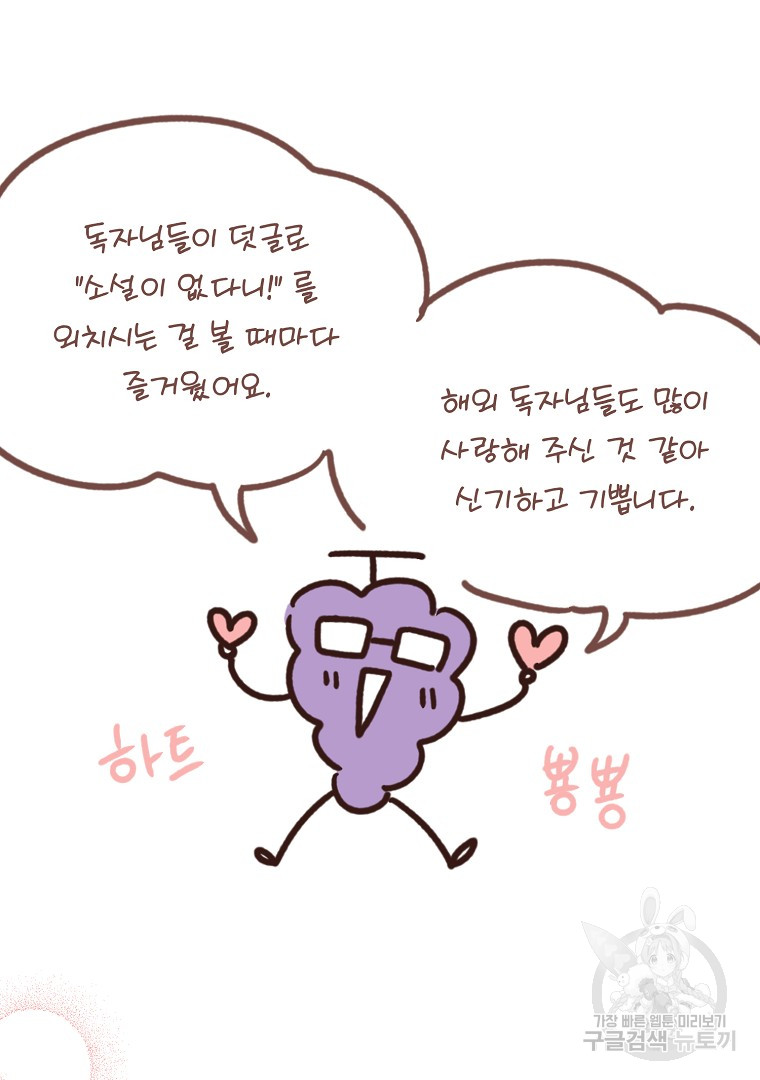 독자님들이 덧글로
"소설이 없다니!" 를
외치시는 걸 볼 때마다
즐거웠어요.
해외 독자님들도 많이
사랑해 주신 것 같아
신기하고 기쁩니다.
하트
뿅뿅
가장 빠른 웹툰 미리보기
구글검색 뉴토끼